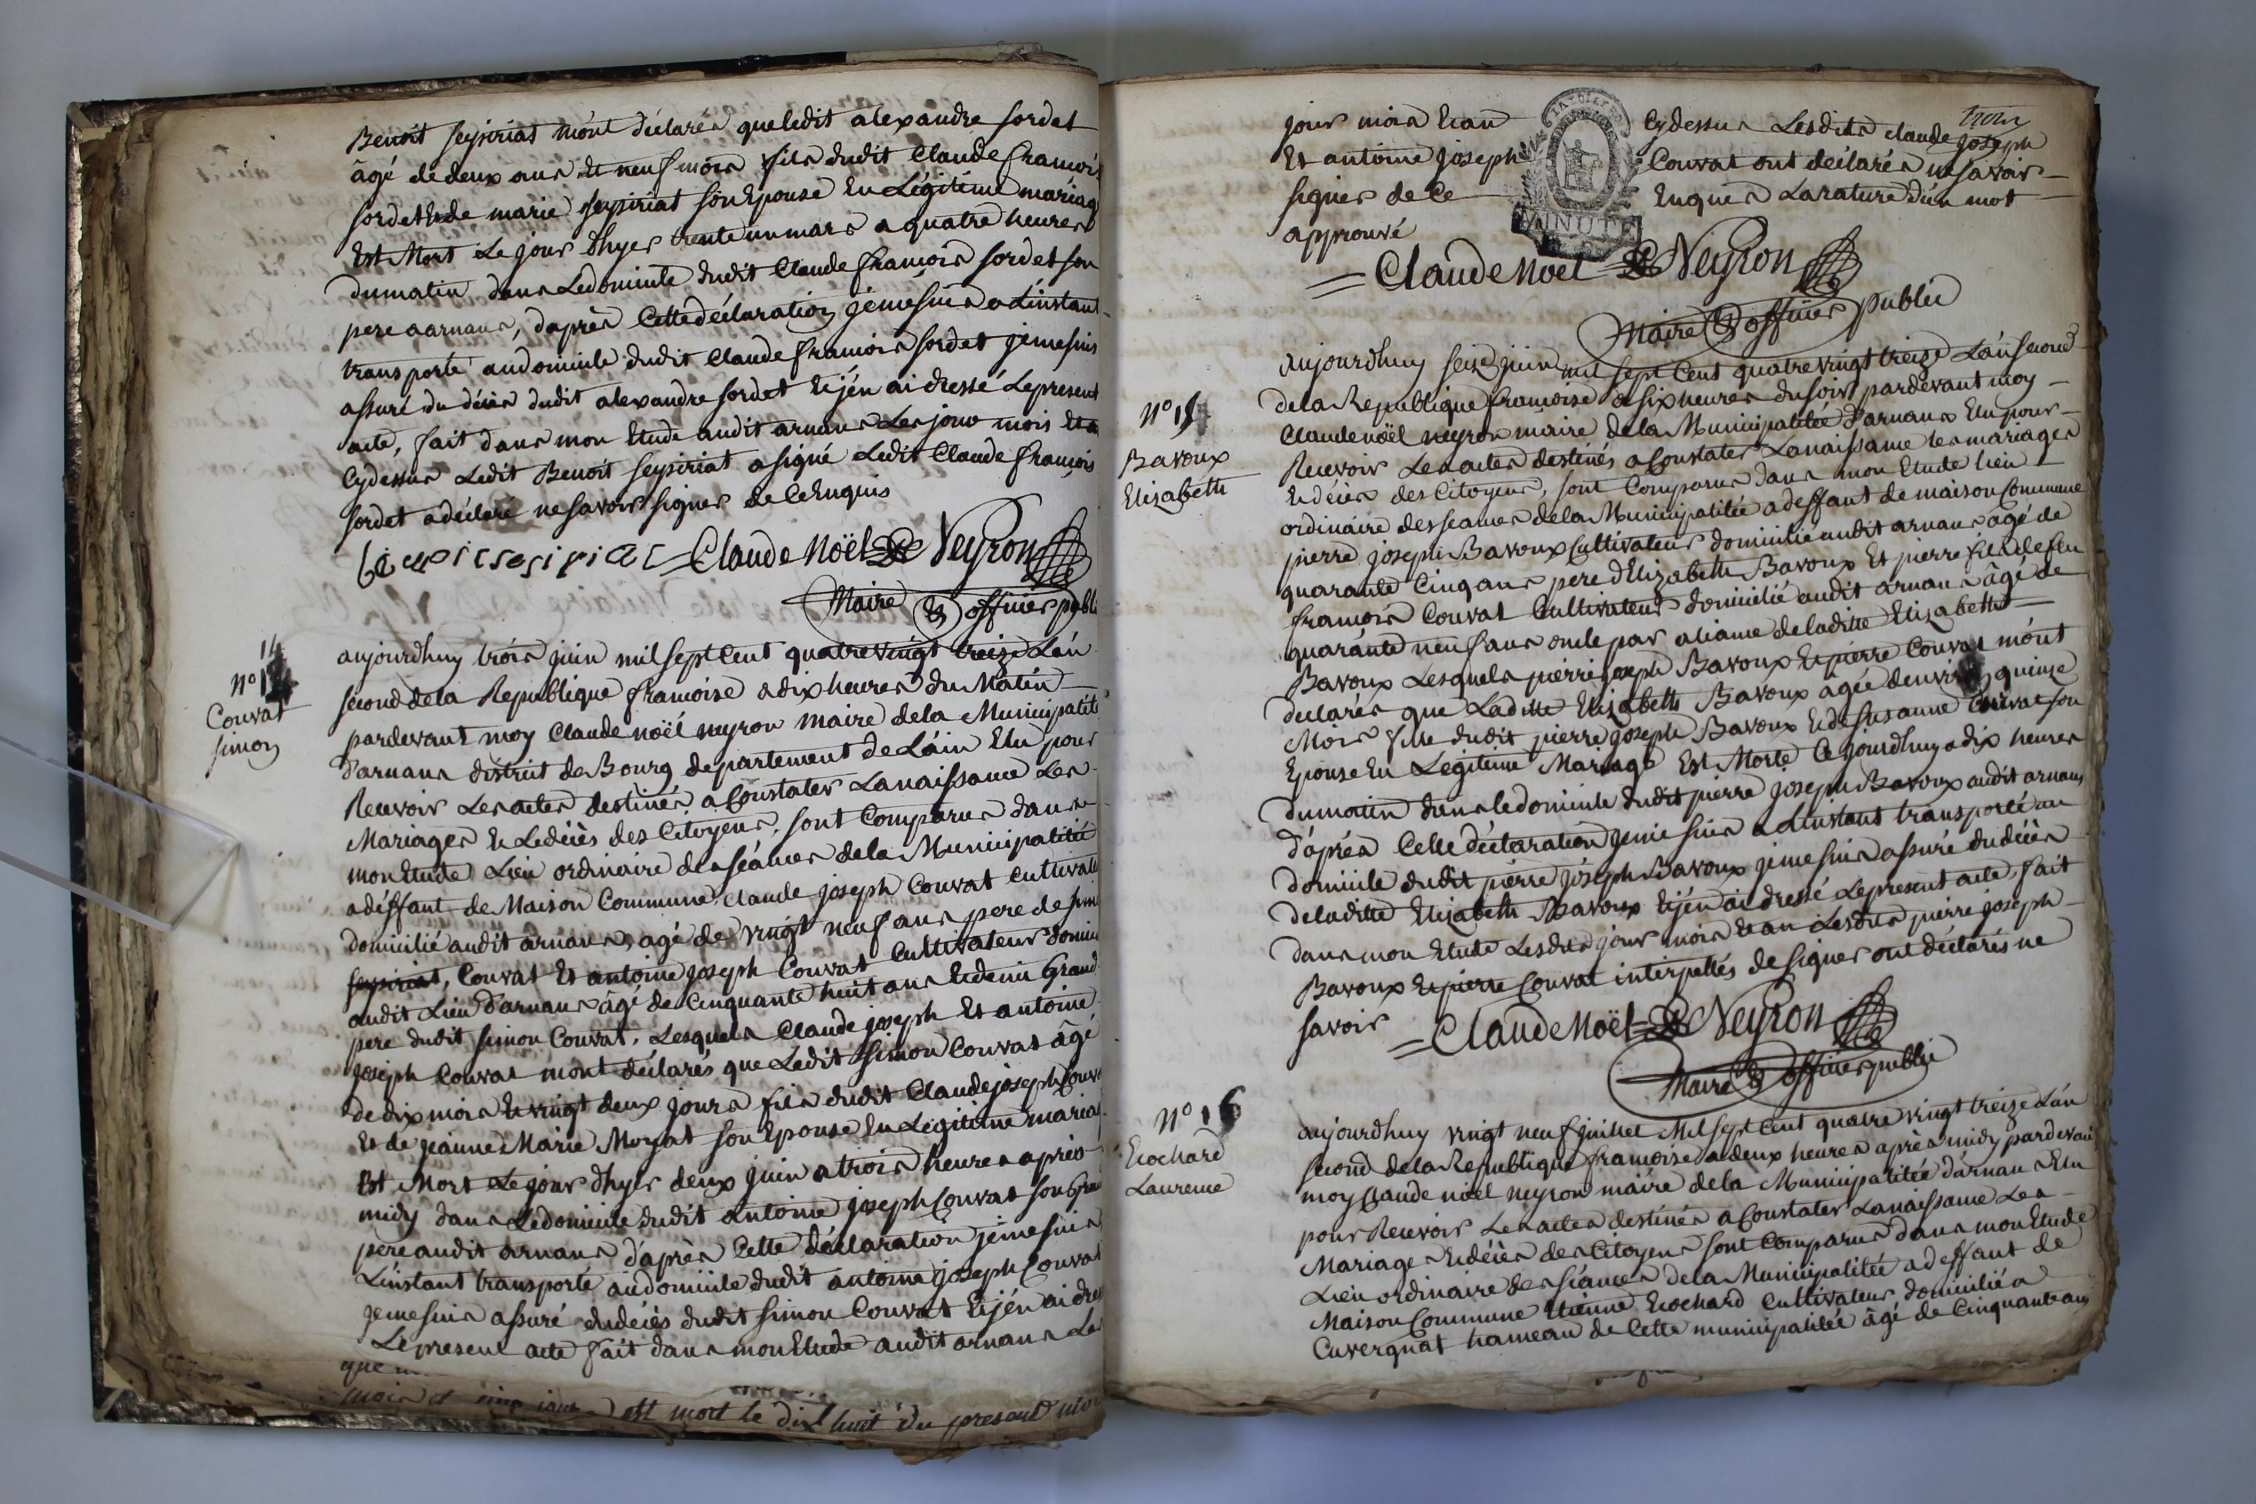 Benoit seyssiriat m'ont déclarés queledit alexandre sordet
âgé de deux ans et neuf mois fils dudit Claude François
sordet et de marie seyssiriat son Epouse En Légitime mariage
Est Mort Le jour d'hyer trente un mars a quatre heures
du matin dans Ledomicile dudit Claude françois sordet son
pere a arnans, d'après Cette déclaration jemesuis a Linstant
transporté audomicile dudit Claude françois sordet jemesuis
assuré du décès dudit alexandre sordet Et j'én ai dressé Lepresent
acte, fait dans mon Etude audit arnans Les jour mois Et an
Cydessus Ledit Benoit seyssiriat a signé Ledit Claude françois
sordet a déclaré ne savoir signer de Ce Enquis
= Claude Noël Neyron
Maire & officier public
14
N° 14
Couvat
simon
aujourdhuy trois juin mil sept Cent quatre vingt treize L'án
second dela Republique françoise a dix heures du Matin
pardevant moy Claude noël neyron maire dela Municipalité
d'arnans district de Bourg departement de L'ain Elu pour
Recevoir Les actes destinés a Constater Lanaissance Les
Mariages Et Ledécès des Citoyens, sont Comparus dans
mon Etude Lieu ordinaire des séances dela Municipalitée
a déffaut de Maison Commune Claude joseph Couvat Cultivateur
domicilié audit arnans, agé de vingt neuf ans pere de simon
seyssiriat, Couvat Et antoine joseph Couvat Cultivateur domicilié
audit Lieu d'arnans âgé de Cinquante huit ans Et demi Grand
pere dudit simon Couvat, Lesquels Claude joseph Et antoine
joseph Couvat m'ont déclarés que Ledit simon Couvat âgé
de dix mois Et vingt deux jours fils dudit Claude joseph Couvat
Et de jeanne Marie Moyat son Epouse En Légitime mariage
Est Mort Le jour d'hyer deux juin a trois heures après
midy dans Ledomicile dudit antoine joseph Couvat son Grand
pere audit arnans d'après Cette déclaration jemesuis
L'instant transporté audomicile dudit antoine joseph Couvat
jemesuis assuré dudécès dudit simon Couvat Et j'én ai dressé
Lepresent acte fait dans mon Etude audit arnans Les
que
mois et cinq jours est mort le dix huit du present mois
trois
jour mois Et an Cydessus Lesdits Claude joseph
Et antoine joseph Couvat ont déclarés ne savoir
signer de Ce Enquis La rature d'un mot
approuvé
MINUTE
= Claude Noël Neyron
Maire & officier public
N° 15
Bavoux
Elizabeth
aujourdhuy seize juin mil sept Cent quatre vingt treize L'an second
dela Republique françoise a six heures du soir pardevant moy
Claude noël neyron maire dela Municipalitée d'arnans Elu pour
Recevoir Les actes destinés a Constater Lanaissance les mariages
Et décès des Citoyens, sont Comparus dans mon Etude lieu
ordinaire des seances dela Municipalitée a deffaut de maison Commune
pierre joseph Bavoux Cultivateur domicilié audit arnans âgé de
quarante Cinq ans pere d'Elizabeth Bavoux Et pierre fils de feu
françois Couvat Cultivateur domicilié audit arnans âgé de
quaránte neuf ans oncle par aliance deladitte Elizabeth
Bavoux Lesquels pierre joseph Bavoux Et pierre Couvat m'ont
déclarés que Laditte Elizabeth Bavoux âgée d'environ quinze
Mois fille dudit pierre joseph Bavoux Et de susanne Couvat son
Epouse En Légitime Mariage Est Morte Cejourdhuy a dix heures
dumatin dans ledomicile dudit pierre joseph Bavoux audit arnans
d'après Cette déclaration jemesuis a Linstant transporté au
domicile dudit pierre joseph Bavoux jemesuis assuré dudécès
deladitte Elizabeth Bavoux Et j'én ai dressé Lepresent acte, fait
dans mon Etude Lesdits jour mois Et an Lesdits pierre joseph
Bavoux Et pierre Couvat interpellés de signer ont déclarés ne
savoir = Claude Noël Neyron
Maire & officier public
N° 16
Ecochard
Laurence
aujourdhuy vingt neuf juillet Mil sept Cent quatre vingt treize L'án
second dela Republique françoise a deux heures après midy pardevant
moy Claude noël neyron maire dela Municipalitée d'arnans Elu
pour Recevoir Les actes destinés a Constater Lanaissance Les
Mariages Et décès des Citoyens sont Comparus dans mon Etude
Lieu ordinaire des séances dela Municipalitée a deffaut de
Maison Commune Etienne Ecochard Cultivateur domicilié a
Cuvergnat hameau de Cette municipalitée âgé de Cinquante ans